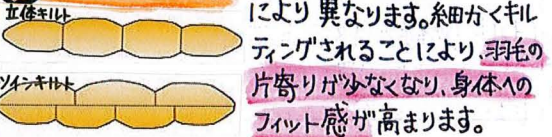 立体キルト
ツインキルト
により異なります。細かくキル
ティングされることにより、羽毛の
片寄りが少なくなり、身体への
フィット感が高まります。